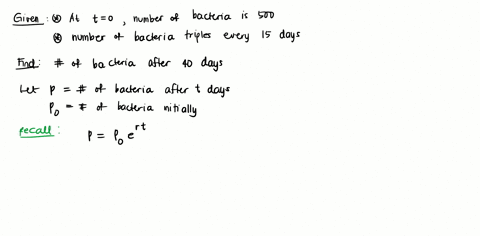 Given: ⊛ At t=0, number of bacteria is 500
⊛ number of bacteria triples every 15 days
Find: # of bacteria after 40 days
Let p = # of bacteria after t days
p₀ = # of bacteria initially
recall: p = p₀ e^{rt}